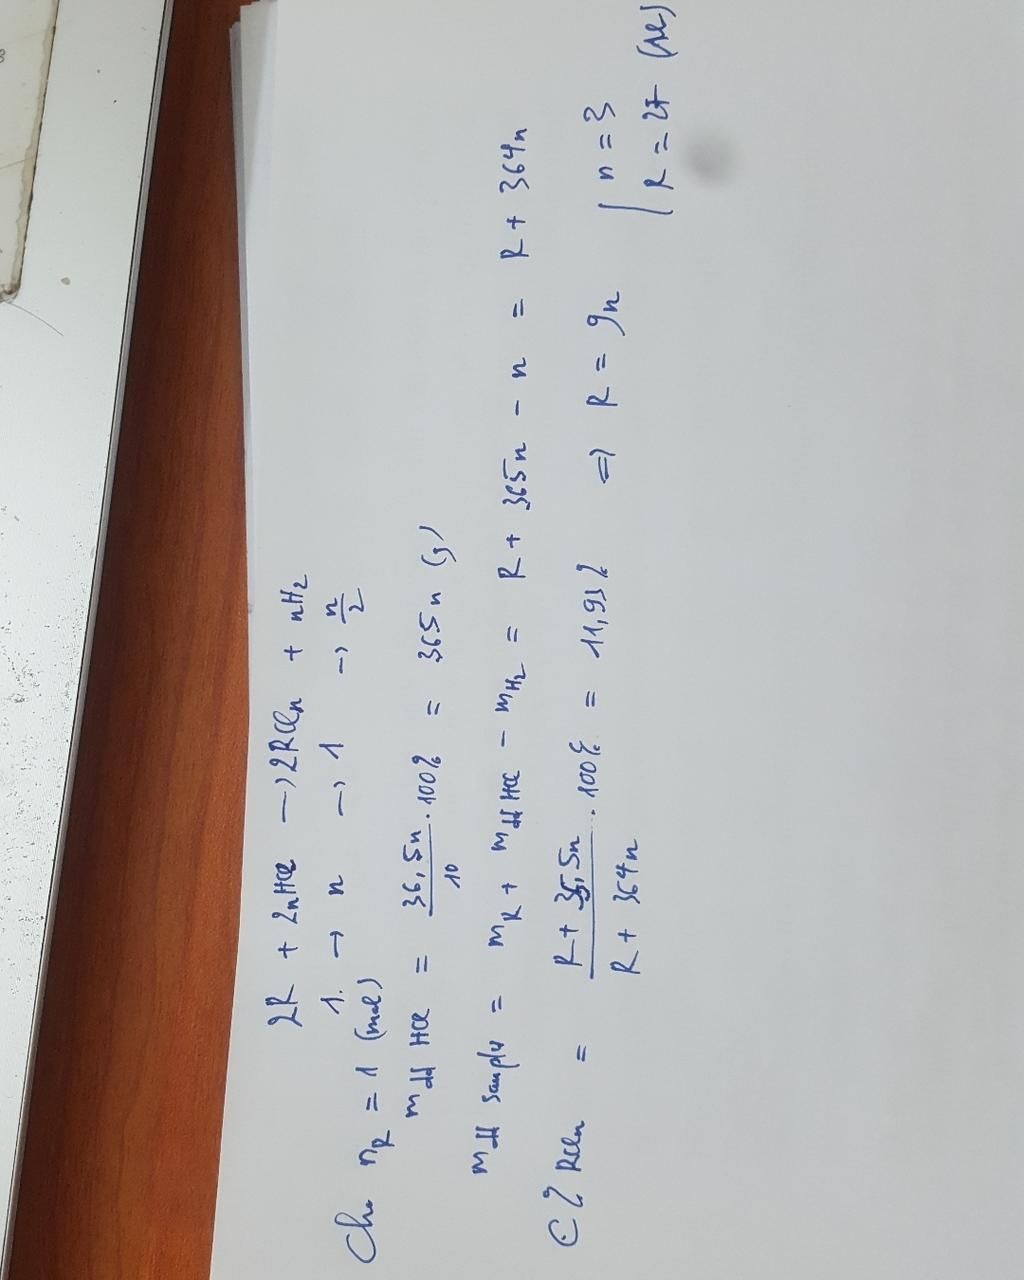 2R + 2nHCl → 2RCln + nH2
1 → n → 1 → n/2
Cho nR = 1 (mol)
mdd HCl = 36,5n/10 . 100% = 365n (g)
mdd sau p/ư = mR + mdd HCl - mH2 = R + 365n - n = R + 364n
C% RCln = R + 35,5n/R + 364n . 100% = 11,93% => R = 9n { n = 3
R = 27 (Al)